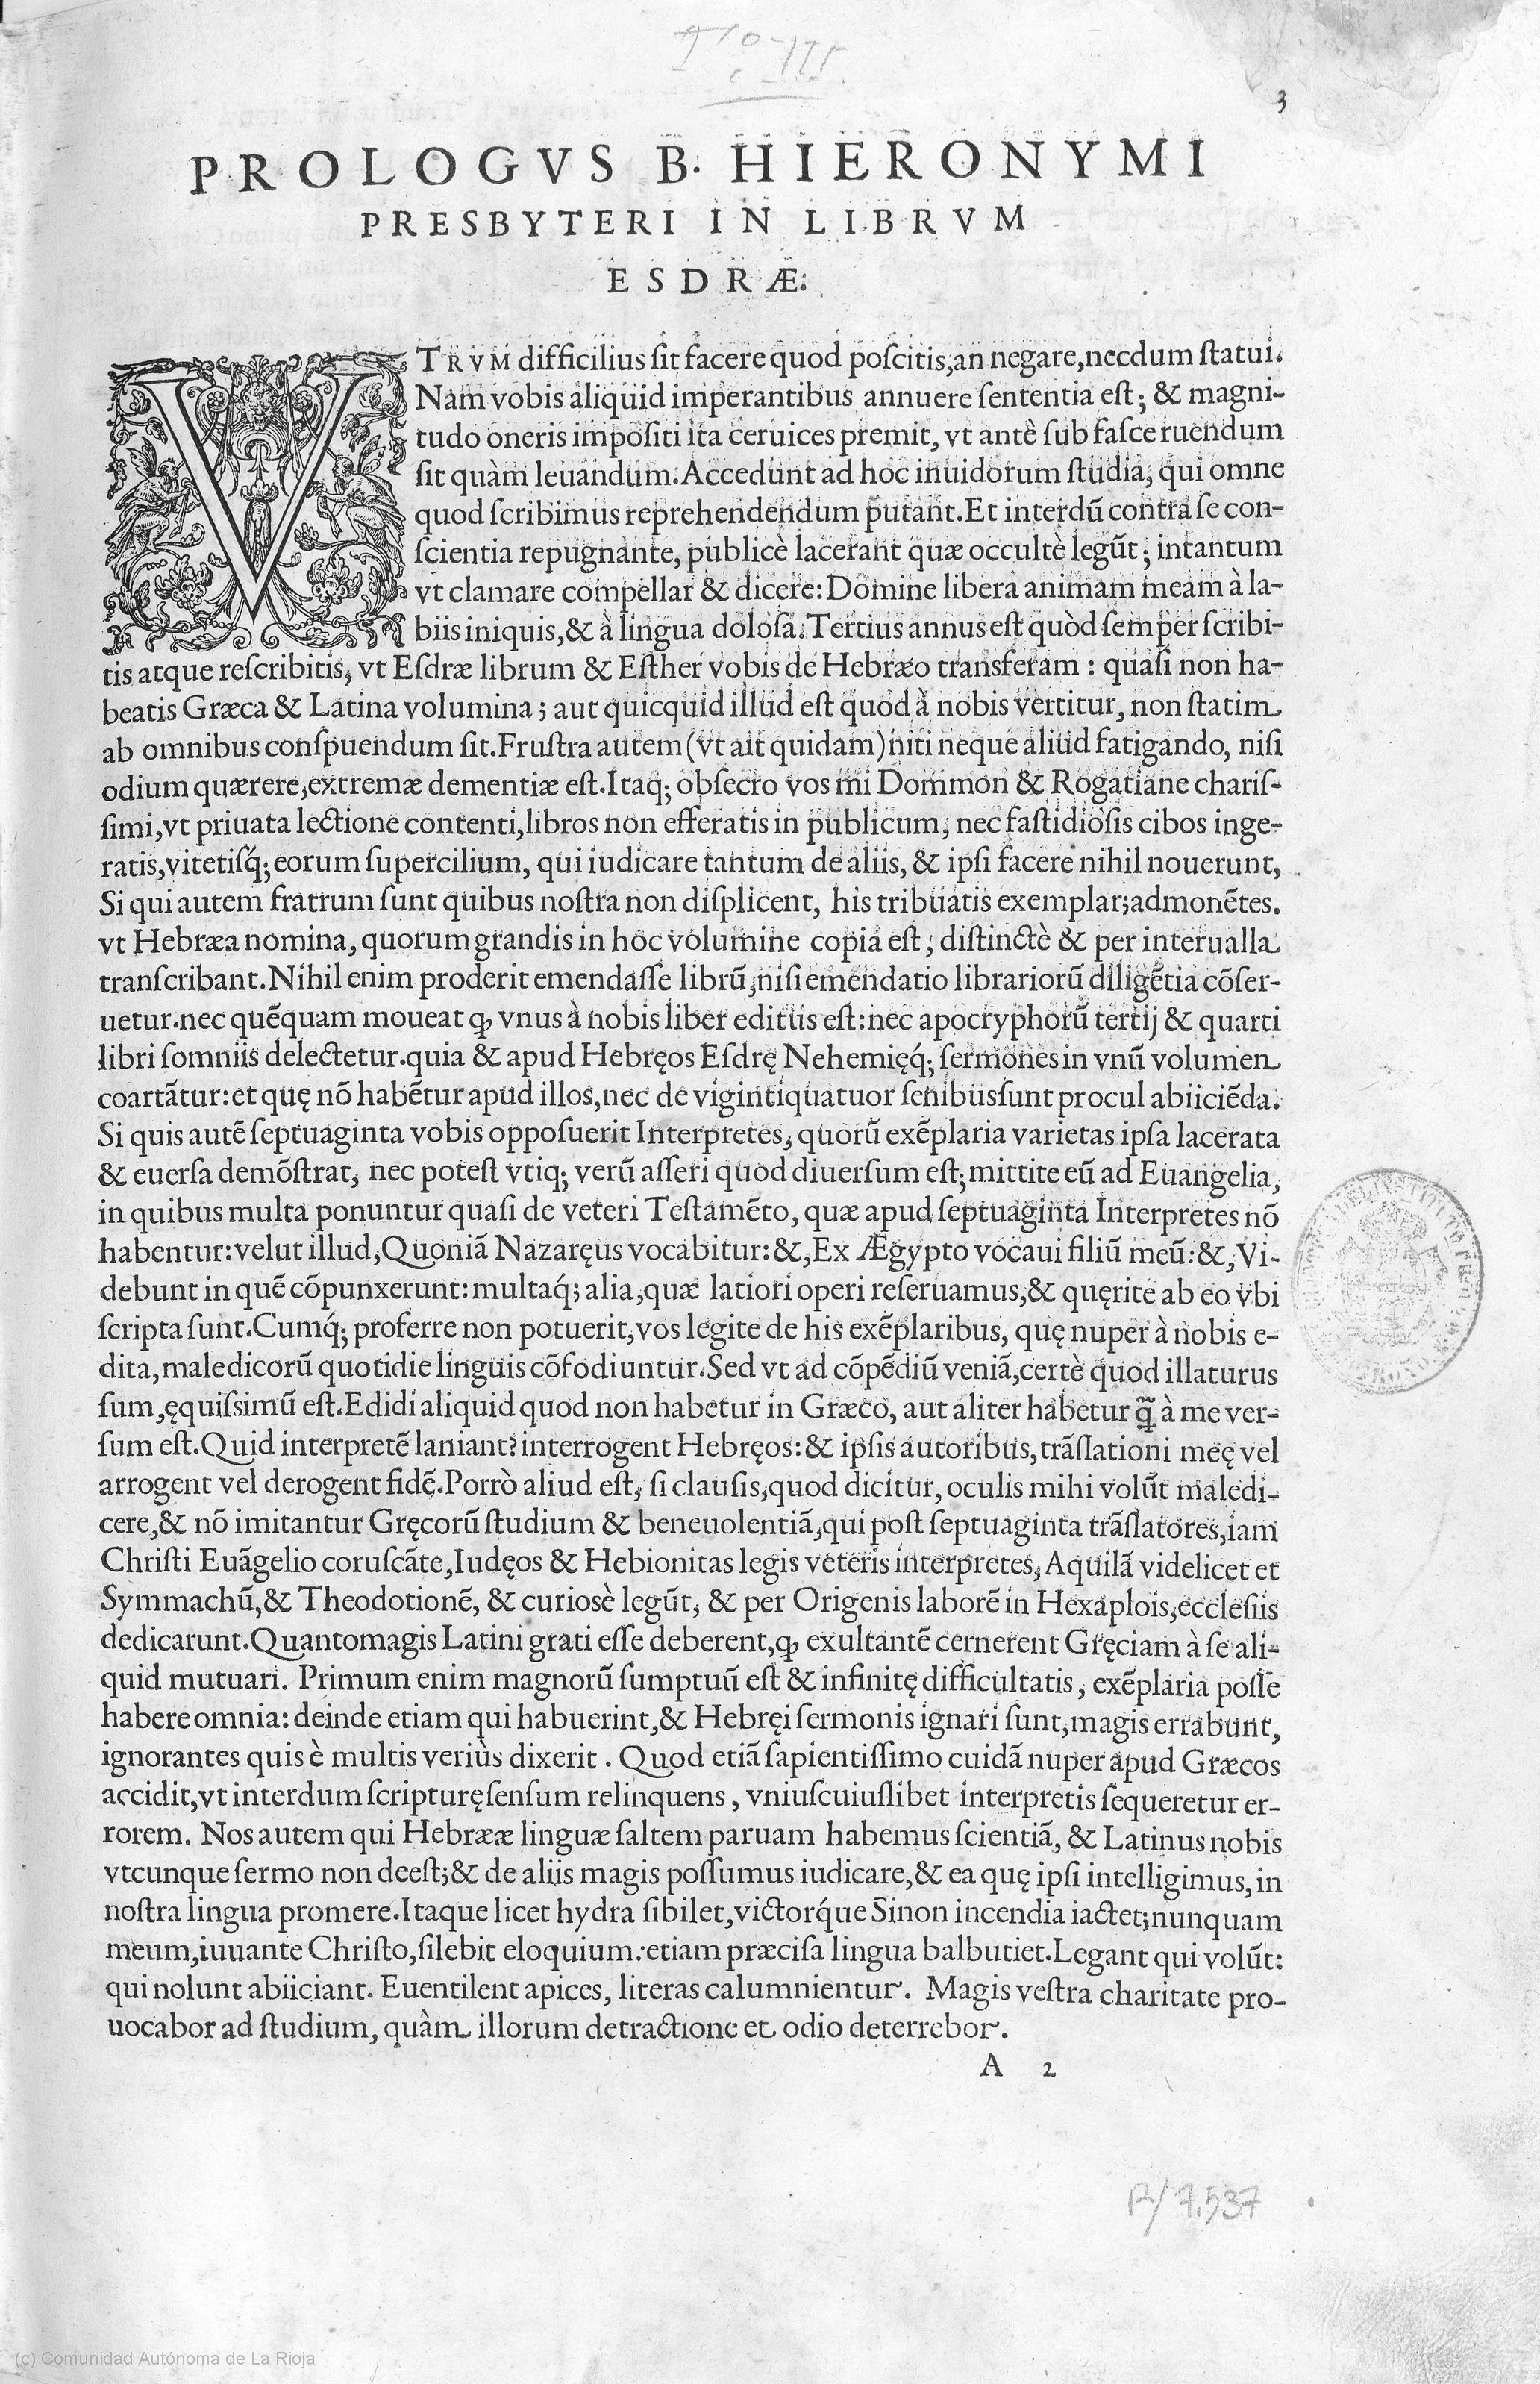 3
PROLOGVS B. HIERONYMI
PRESBYTERI IN LIBRVM
ESDRÆ.
VTRVM difficilius sit facere quod poscitis, an negare, necdum statui.
Nam vobis aliquid imperantibus annuere sententia est; & magni-
tudo oneris impositi ita ceruices premit, vt antè sub fasce ruendum
sit quàm leuandum. Accedunt ad hoc inuidorum studia, qui omne
quod scribimus reprehendendum putant. Et interdū contra se con-
scientia repugnante, publicè lacerant quæ occultè legūt; intantum
vt clamare compellar & dicere: Domine libera animam meam à la-
biis iniquis, & à lingua dolosa. Tertius annus est quòd semper scribi-
tis atque rescribitis, vt Esdræ librum & Esther vobis de Hebræo transferam : quasi non ha-
beatis Græca & Latina volumina ; aut quicquid illud est quod à nobis vertitur, non statim
ab omnibus conspuendum sit. Frustra autem (vt ait quidam) niti neque aliud fatigando, nisi
odium quærere, extremæ dementiæ est. Itaq; obsecro vos mi Dommon & Rogatiane charis-
simi, vt priuata lectione contenti, libros non efferatis in publicum, nec fastidiosis cibos inge-
ratis, vitetisq́; eorum supercilium, qui iudicare tantum de aliis, & ipsi facere nihil nouerunt,
Si qui autem fratrum sunt quibus nostra non displicent, his tribuatis exemplar; admonētes.
vt Hebræa nomina, quorum grandis in hoc volumine copia est, distinctè & per interualla
transcribant. Nihil enim proderit emendasse librū, nisi emendatio librariorū diligētia cōser-
uetur. nec quēquam moueat ꝙ vnus à nobis liber editus est: nec apocryphorū tertij & quarti
libri somniis delectetur. quia & apud Hebręos Esdrę Nehemięq́; sermones in vnū volumen
coartātur: et quę nō habētur apud illos, nec de vigintiquatuor senibus sunt procul abiiciēda.
Si quis autē septuaginta vobis opposuerit Interpretes, quorū exēplaria varietas ipsa lacerata
& euersa demōstrat, nec potest vtiq; verū asseri quod diuersum est; mittite eū ad Euangelia,
in quibus multa ponuntur quasi de veteri Testamēto, quæ apud septuaginta Interpretes nō
habentur: velut illud, Quoniā Nazaręus vocabitur: &, Ex Ægypto vocaui filiū meū: &, Vi-
debunt in quē cōpunxerunt: multaq́; alia, quæ latiori operi reseruamus, & quęrite ab eo vbi
scripta sunt. Cumq́; proferre non potuerit, vos legite de his exēplaribus, quę nuper à nobis e-
dita, maledicorū quotidie linguis cōfodiuntur. Sed vt ad cōpēdiū veniā, certè quod illaturus
sum, ęquissimū est. Edidi aliquid quod non habetur in Græco, aut aliter habetur q̄̃ à me ver-
sum est. Quid interpretē laniant? interrogent Hebręos: & ipsis autoribus, trāslationi meę vel
arrogent vel derogent fidē. Porrò aliud est, si clausis, quod dicitur, oculis mihi volūt maledi-
cere, & nō imitantur Gręcorū studium & beneuolentiā, qui post septuaginta trāslatores, iam
Christi Euāgelio coruscāte, Iudęos & Hebionitas legis veteris interpretes, Aquilā videlicet et
Symmachū, & Theodotionē, & curiosè legūt, & per Origenis laborē in Hexaplois, ecclesiis
dedicarunt. Quantomagis Latini grati esse deberent, ꝙ exultantē cernerent Gręciam à se ali-
quid mutuari. Primum enim magnorū sumptuū est & infinitę difficultatis, exēplaria posse
habere omnia: deinde etiam qui habuerint, & Hebręi sermonis ignari sunt, magis errabunt,
ignorantes quis è multis veriùs dixerit . Quod etiā sapientissimo cuidā nuper apud Græcos
accidit, vt interdum scripturę sensum relinquens , vniuscuiuslibet interpretis sequeretur er-
rorem. Nos autem qui Hebrææ linguæ saltem paruam habemus scientiā, & Latinus nobis
vtcunque sermo non deest; & de aliis magis possumus iudicare, & ea quę ipsi intelligimus, in
nostra lingua promere. Itaque licet hydra sibilet, victorq́ue Sinon incendia iactet; nunquam
meum, iuuante Christo, silebit eloquium: etiam præcisa lingua balbutiet. Legant qui volūt:
qui nolunt abiiciant. Euentilent apices, literas calumnientur. Magis vestra charitate pro-
uocabor ad studium, quàm illorum detractione et odio deterrebor.
A 2
R/7.537
(c) Comunidad Autónoma de La Rioja